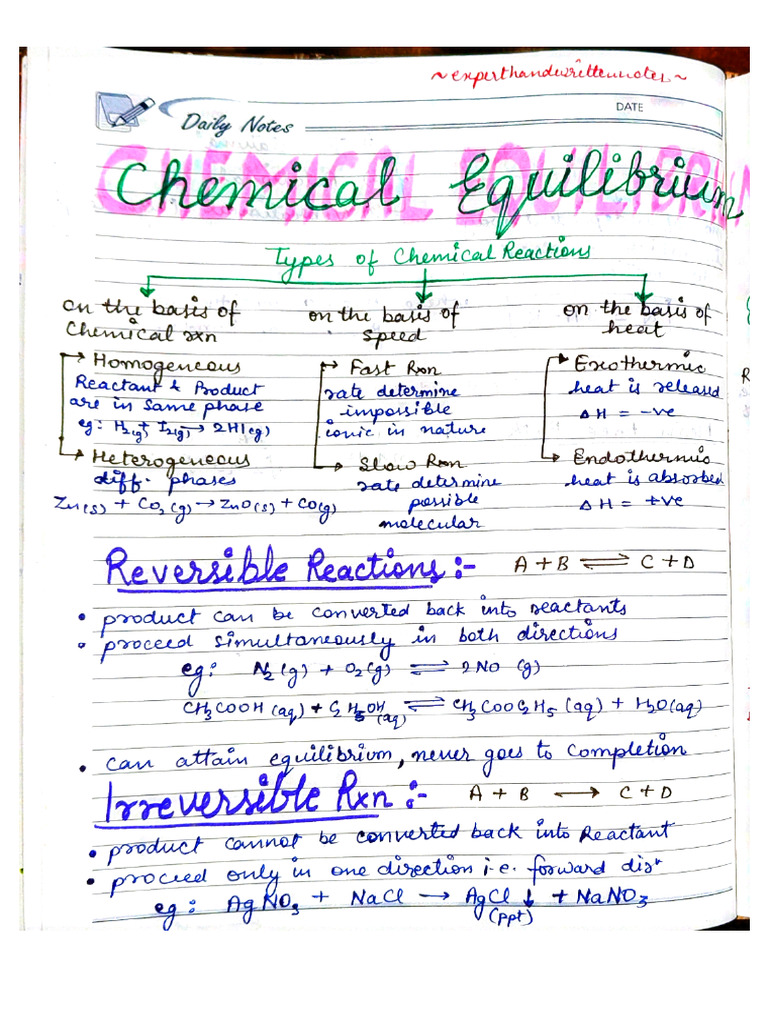 ~experthandwrittennotes~
DATE
Daily Notes
CHEMICAL EQUILIBRIUM
Chemical Equilibrium
Types of Chemical Reactions
on the basis of Chemical rxn
Homogeneous
Reactant & Product
are in same phase
eg: H₂(g) + I₂(g) → 2HI(g)
Heterogeneous
diff. phases
Zn(s) + CO₂(g) → ZnO(s) + CO(g)
on the basis of speed
Fast Rxn
rate determine
impossible
ionic in nature
Slow Rxn
rate determine
possible
molecular
on the basis of heat
Exothermic
heat is released
ΔH = -ve
Endothermic
heat is absorbed
ΔH = +ve
Reversible Reactions :- A + B ⇌ C + D
• product can be converted back into reactants
• proceed simultaneously in both directions
eg: N₂(g) + O₂(g) ⇌ 2NO (g)
CH₃COOH (aq) + C₂H₅OH (aq) ⇌ CH₃COOC₂H₅ (aq) + H₂O(aq)
• can attain equilibrium, never goes to completion
Irreversible Rxn :- A + B → C + D
• product cannot be converted back into Reactant
• proceed only in one direction i.e. forward dirⁿ
eg: AgNO₃ + NaCl → AgCl ↓ + NaNO₃
(ppt)